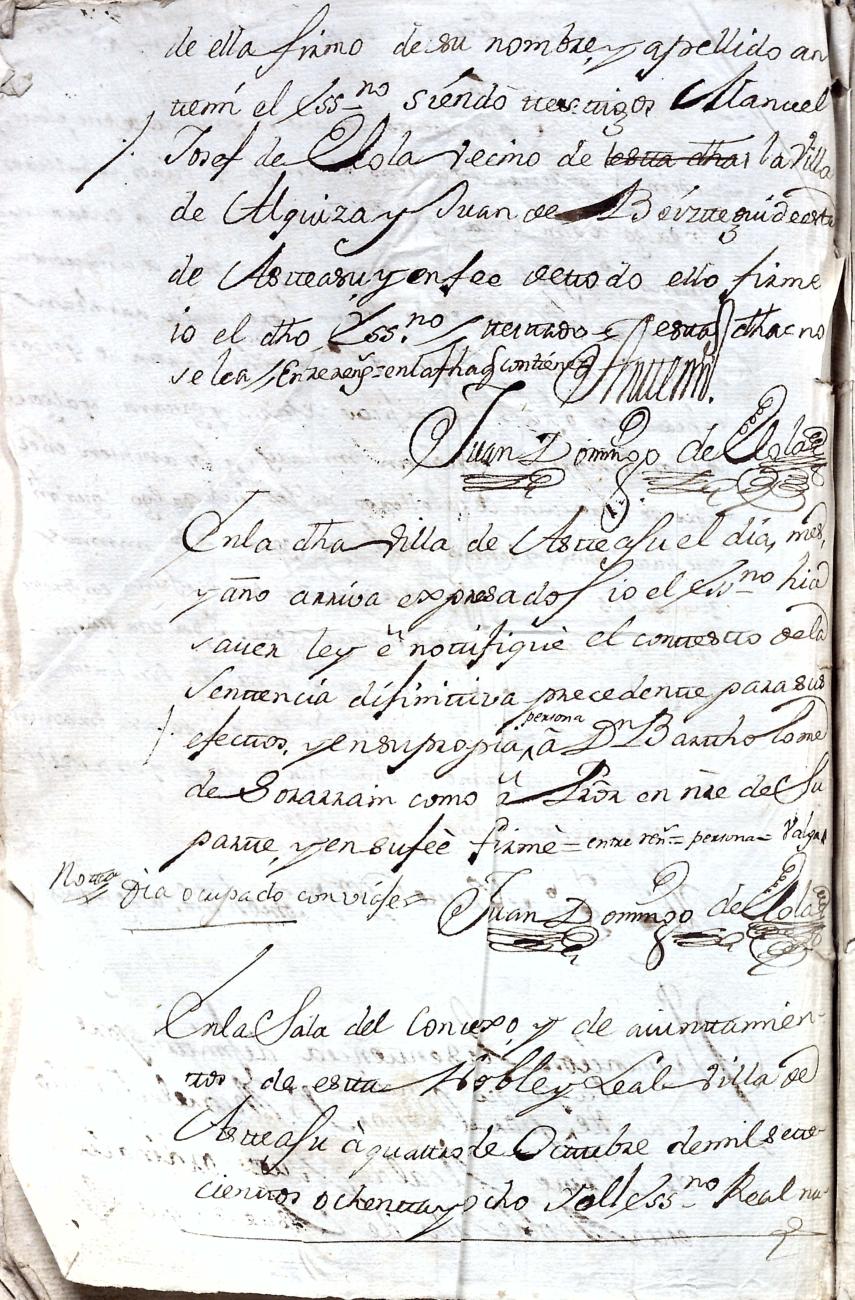 de ella firmo de su nombre, y apellido an
ttemi el Ess.no siendo ttesttigos Manuel
Josef de Olola vecino de estta dha la villa
de Alquiza y Juan de Beizttegui de estta
de Astteasu, y en fee de ttodo ello firme
io el dho Ess.no / testtado = esttas dha = no
se lea / Entre reng.s = en la dha q contiene
Anttemi.
Juan Domingo de Olola
En la dha villa de Astteasu el dia, mes,
y año arriva expresados io el Ess.no hice
saver ley è nottifiquè el conttestto de la
Senttencia difinittiva precedentte para sus
efecttos, y en su propia persona à Dn Barttholome
de Sorarrain como à Pror en nre de Su
partte, y en su feè firmè = entre reñ.s = persona = Valga
Notta
Dia ocupado con viaje
Juan Domingo de Olola
En la Sala del Consexo, y de aiunttamien-
ttos de estta Noble y Leal villa de
Astteasu à quattro de Octtubre de mil sette-
cienttos ochentta y ocho Io el Ess.no Real nu-